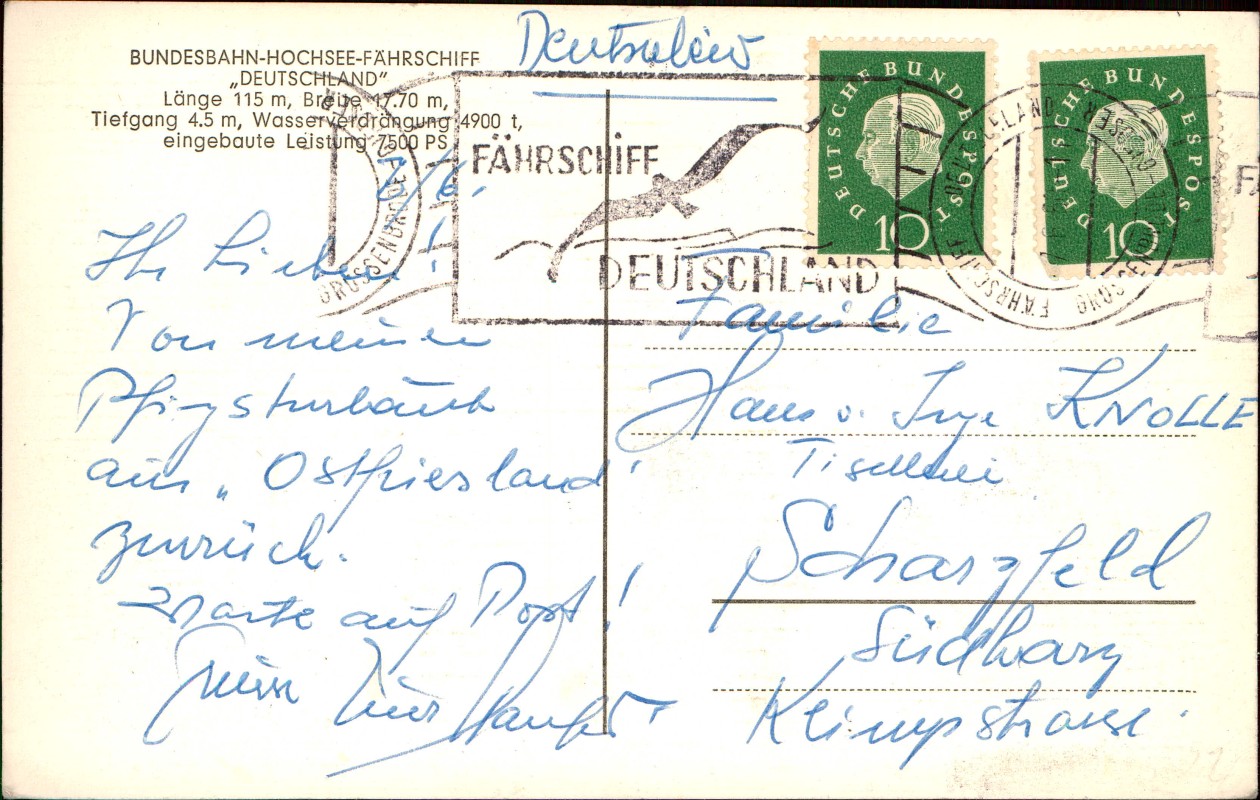 BUNDESBAHN-HOCHSEE-FÄHRSCHIFF
„DEUTSCHLAND"
Länge 115 m, Breite 17.70 m,
Tiefgang 4.5 m, Wasserverdrängung 4900 t,
eingebaute Leistung 7500 PS
FÄHRSCHIFF
DEUTSCHLAND
GROSSENBRODE
DEUTSCHE BUNDESPOST
10
DEUTSCHE BUNDESPOST
10
FÄHRSCHIFF
Ihr Lieben!
Von meinen
Pfingsturlaub
aus „Ostfriesland
zurück.
Warte auf Post!
Familie
Hans u. Inge KNOLLE
Tischlerei
Scharzfeld
Südharz
Klimpstrasse